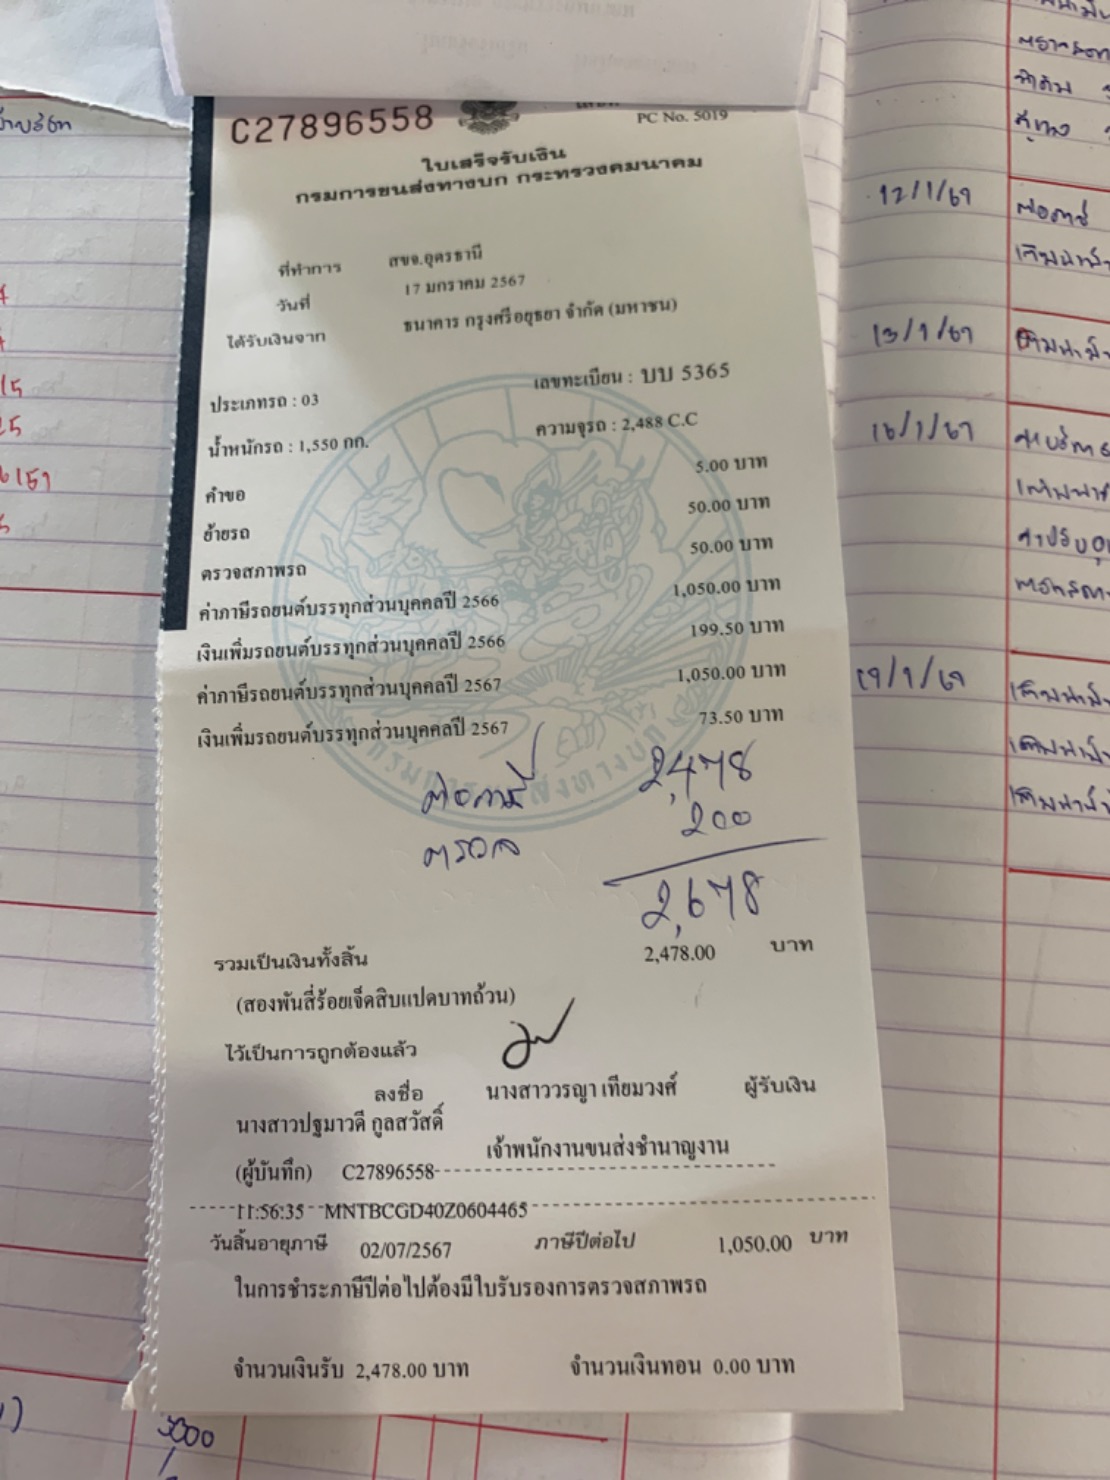 C27896558
PC No. 5019
ใบเสร็จรับเงิน
กรมการขนส่งทางบก กระทรวงคมนาคม
ที่ทำการ สขจ.อุดรธานี
วันที่ 17 มกราคม 2567
ได้รับเงินจาก ธนาคาร กรุงศรีอยุธยา จำกัด (มหาชน)
ประเภทรถ : 03 เลขทะเบียน : บบ 5365
น้ำหนักรถ : 1,550 กก. ความจุรถ : 2,488 C.C
คำขอ 5.00 บาท
ย้ายรถ 50.00 บาท
ตรวจสภาพรถ 50.00 บาท
ค่าภาษีรถยนต์บรรทุกส่วนบุคคลปี 2566 1,050.00 บาท
เงินเพิ่มรถยนต์บรรทุกส่วนบุคคลปี 2566 199.50 บาท
ค่าภาษีรถยนต์บรรทุกส่วนบุคคลปี 2567 1,050.00 บาท
เงินเพิ่มรถยนต์บรรทุกส่วนบุคคลปี 2567 73.50 บาท
ต่อภาษี 2,478
ตรวจ 200
2,678
รวมเป็นเงินทั้งสิ้น 2,478.00 บาท
(สองพันสี่ร้อยเจ็ดสิบแปดบาทถ้วน)
ไว้เป็นการถูกต้องแล้ว
ลงชื่อ นางสาววรญา เทียมวงศ์ ผู้รับเงิน
นางสาวปฐมาวดี กูลสวัสดิ์
เจ้าพนักงานขนส่งชำนาญงาน
(ผู้บันทึก) C27896558
11:56:35 MNTBCGD40Z0604465
วันสิ้นอายุภาษี 02/07/2567 ภาษีปีต่อไป 1,050.00 บาท
ในการชำระภาษีปีต่อไปต้องมีใบรับรองการตรวจสภาพรถ
จำนวนเงินรับ 2,478.00 บาท จำนวนเงินทอน 0.00 บาท
12/1/67
13/1/67
16/1/67
19/1/67
3000